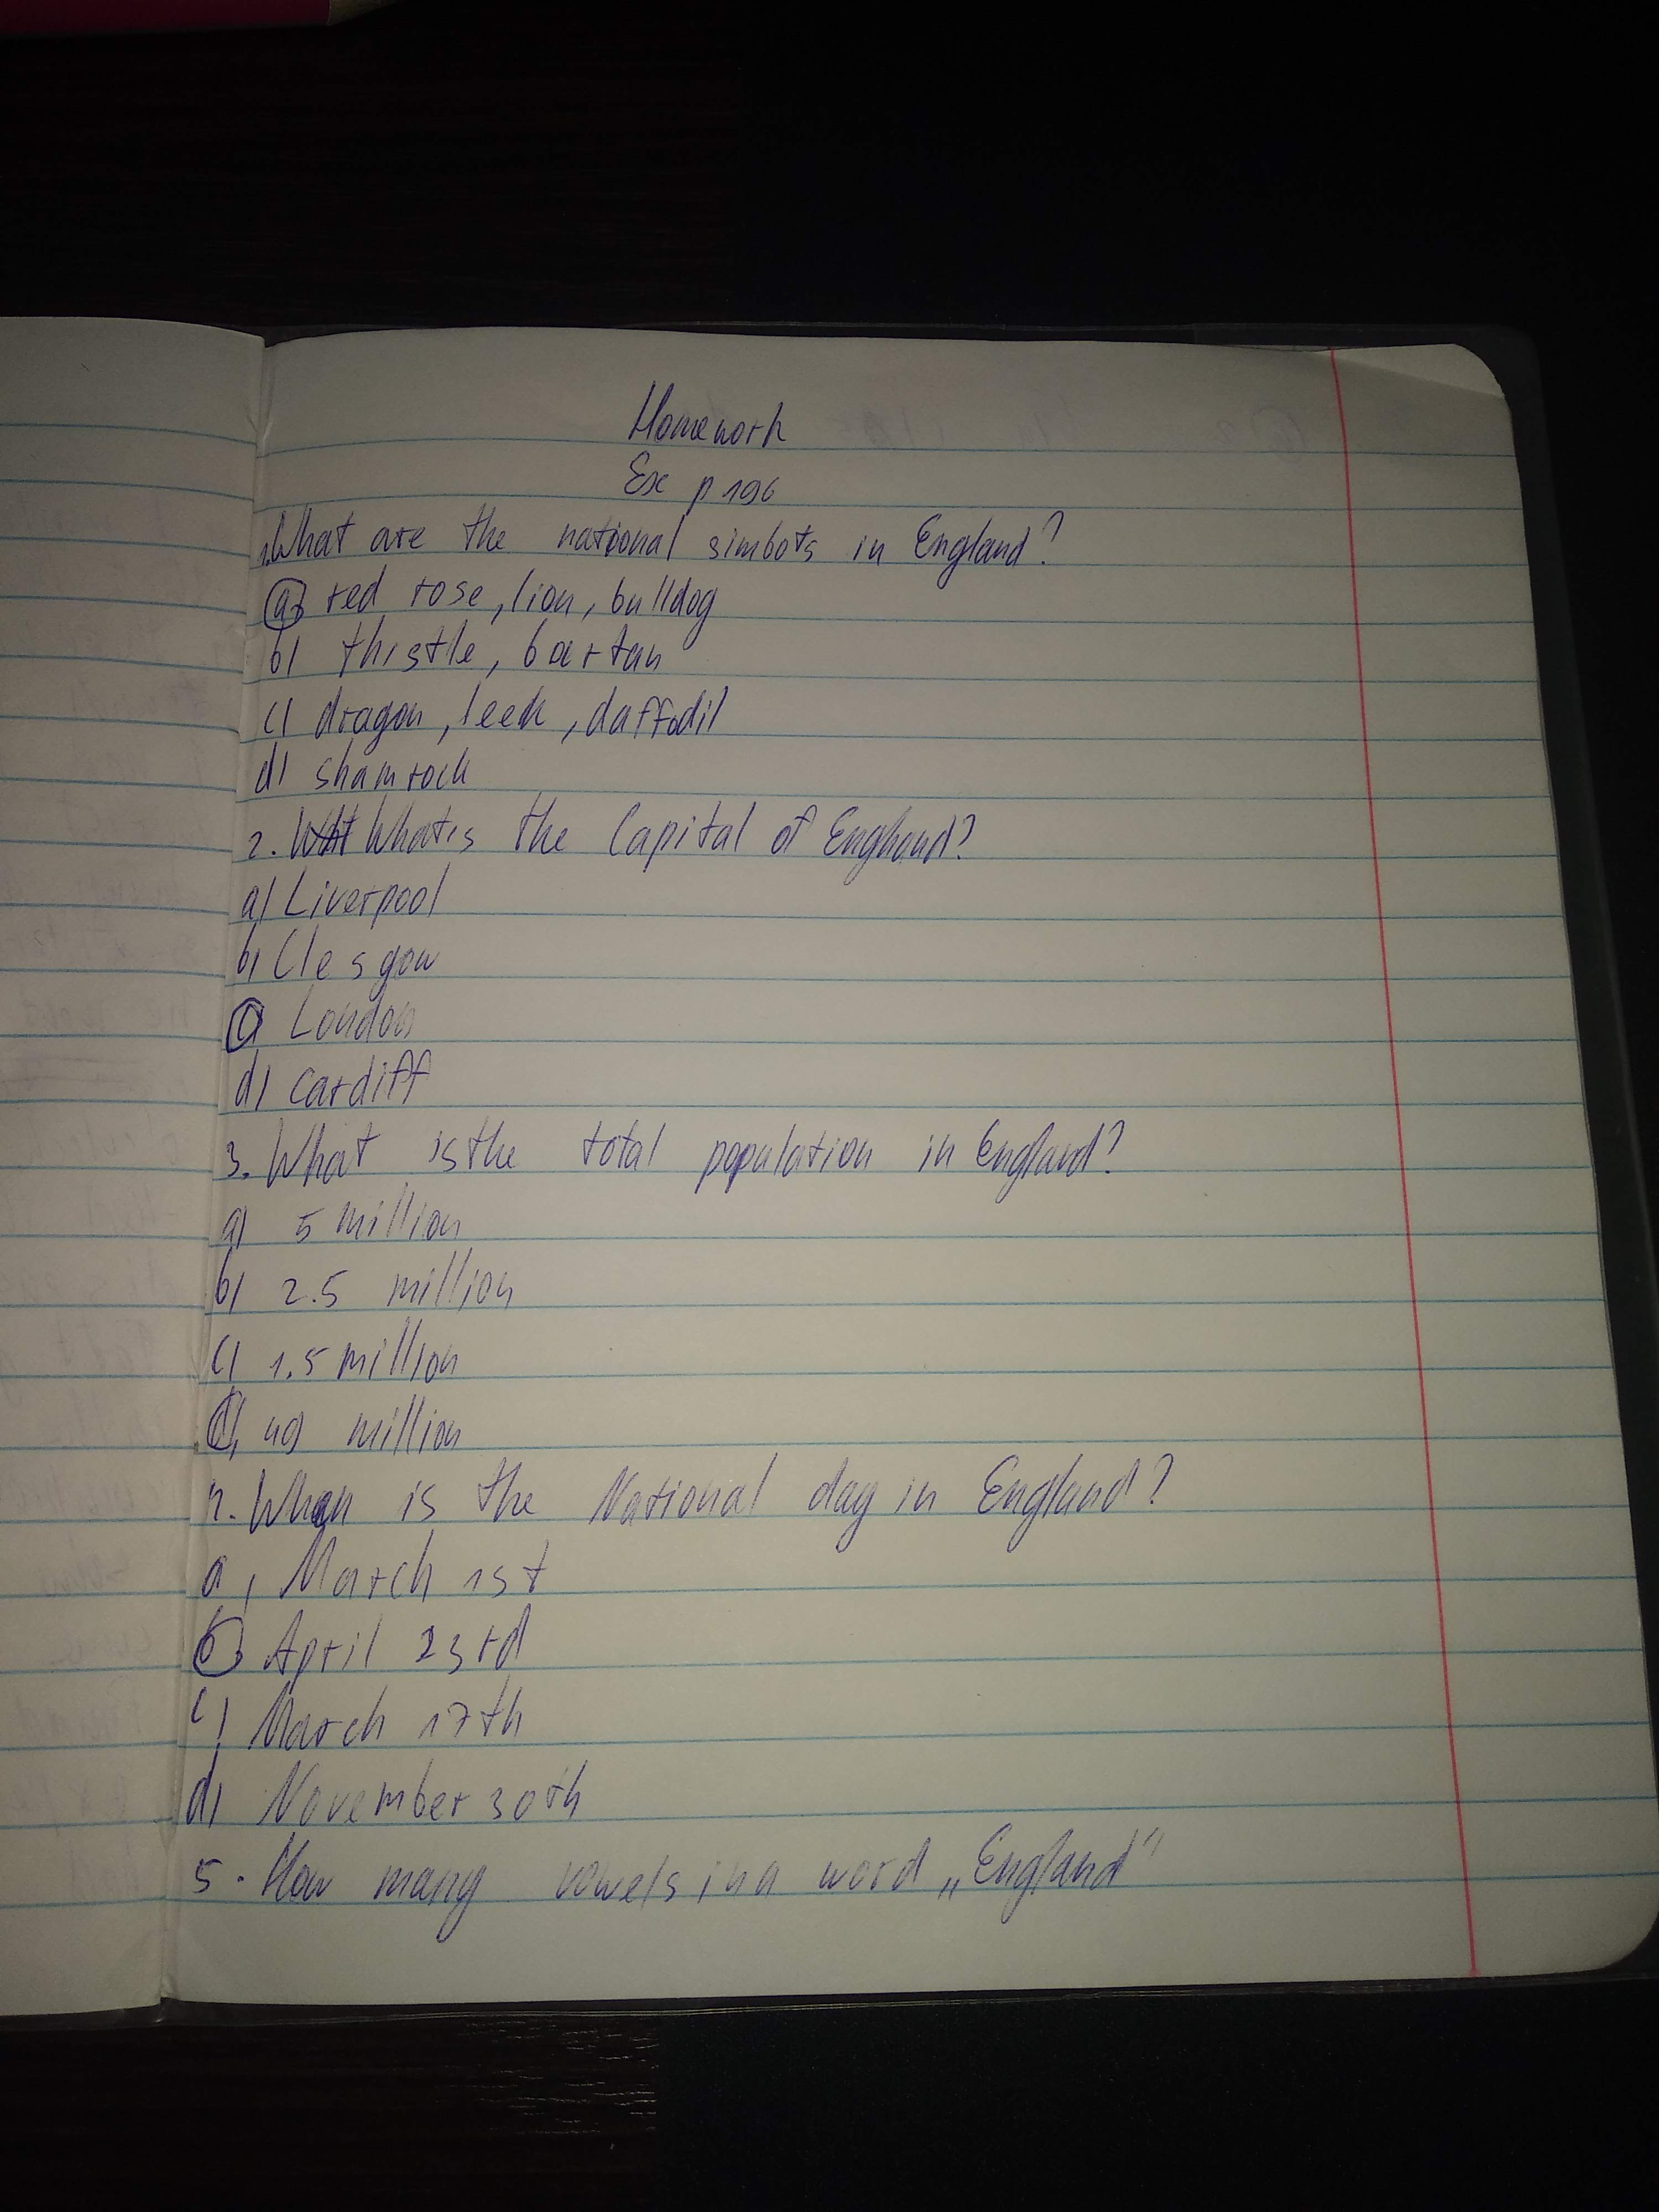 Homework
Ex p 196
1.What are the national simbols in England?
a) red rose, lion, bulldog
b) thistle, bartan
c) dragon, leek, daffodil
d) shamrock
2. What is the Capital of England?
a) Liverpool
b) Clesgow
c) London
d) cardiff
3. What is the total population in England?
a) 5 million
b) 2.5 million
c) 1.5 million
d) 49 million
4. When is the National day in England?
a) March 1st
b) April 23rd
c) March 17th
d) November 30th
5. How many vowels in a word „England"